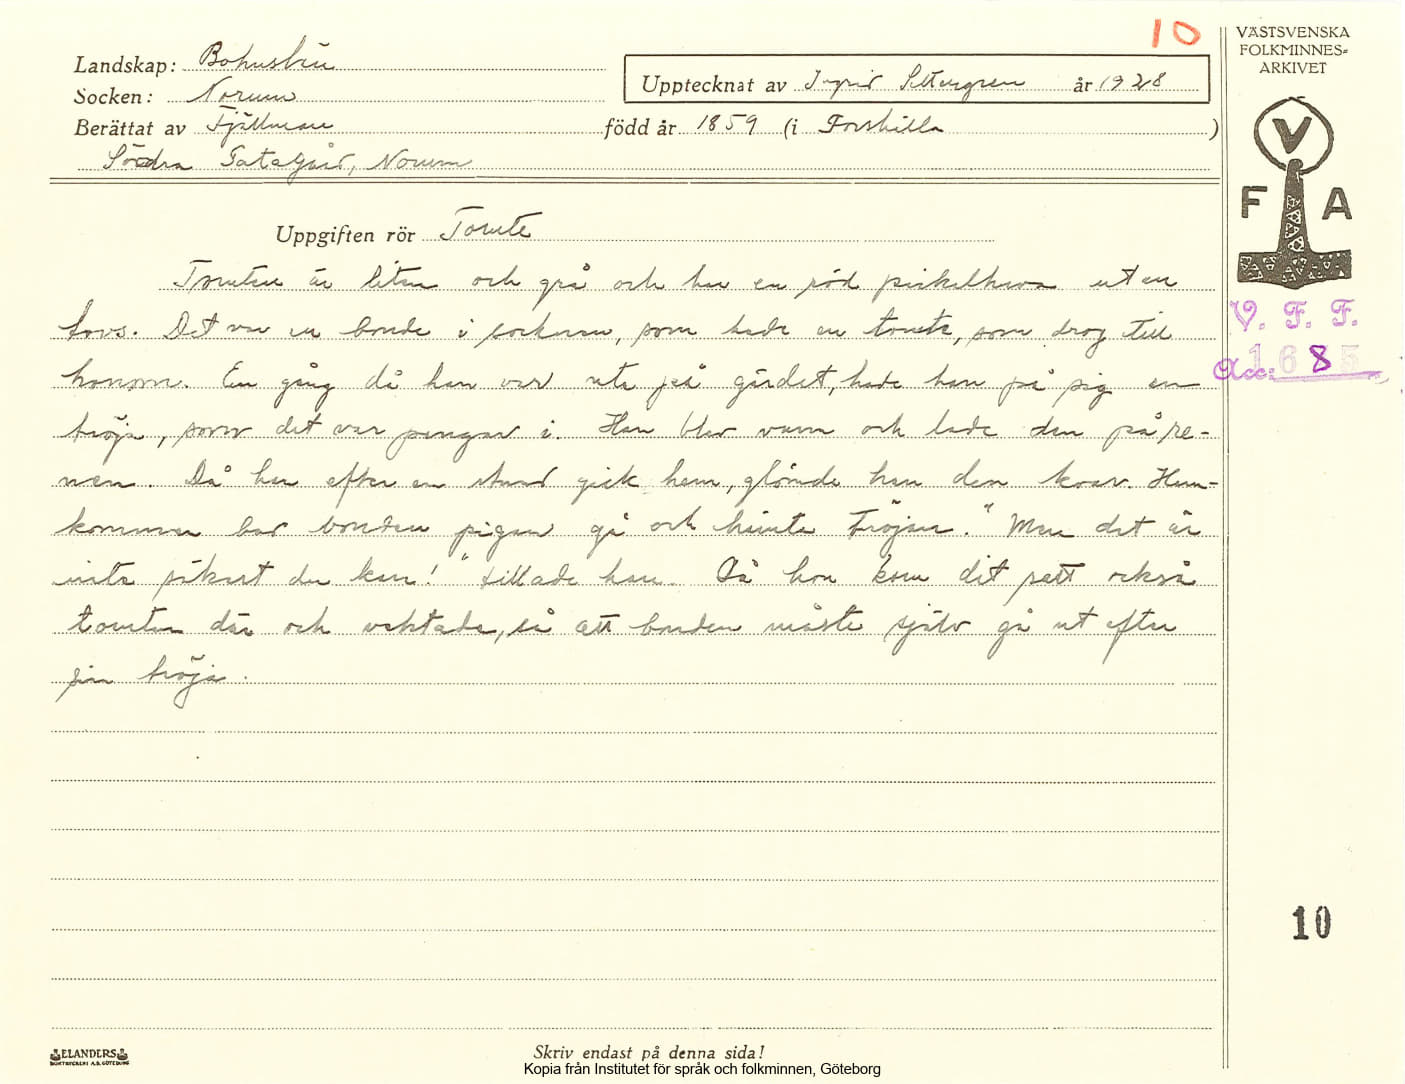 10
VÄSTSVENSKA
FOLKMINNES=
ARKIVET
Landskap: Bohuslän
Upptecknat av Ingrid Settergren år 1928
Socken: Norum
Berättat av Fjällman född år 1859 (i Forshälla)
Södra Tatagård, Norum
V
F A
Uppgiften rör Tomte
Tomten är liten och grå och har en röd pickelhuva utan
tovs. Det var en bonde i socknen, som hade en tomte, som drog till
honom. En gång då han var ute på gärdet, hade han på sig en
tröja, som det var pengar i. Han blev varm och lade den på re-
nen. Då han efter en stund gick hem, glömde han den kvar. Hem-
kommen bad bonden pigan gå och hämta tröjan. "Men det är
inte säkert du kan!" tillade han. Då hon kom dit satt också
tomten där och vaktade, så att bonden måste själv gå ut efter
sin tröja.
V. F. F.
Acc: 1685
10
ELANDERS
BOKTRYCKERI A.B. GÖTEBORG
Skriv endast på denna sida!
Kopia från Institutet för språk och folkminnen, Göteborg